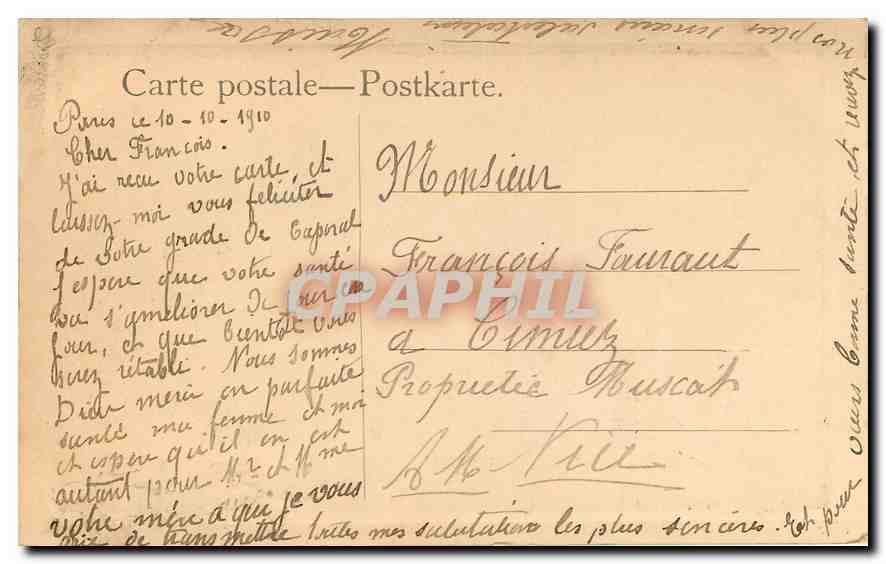 Carte postale—Postkarte.
Paris le 10-10-1910
Cher François.
J'ai reçu votre carte, et
laissez-moi vous féliciter
de votre grade de Caporal
j'espère que votre santé
va s'améliorer de jour en
jour, et que bientôt vous
serez rétabli. Nous sommes
Dieu merci en parfaite
santé ma femme et moi
et espère qu'il en est
autant pour Mr et Mme
votre mère a qui je vous
prie de transmettre toutes mes salutations les plus sincères. Et pour
vous bonne santé, et recevez
nos plus sincères salutations
Monsieur
François Fauraut
a Cimiez
Propriétée Muscat
A M Nice
CPAPHIL